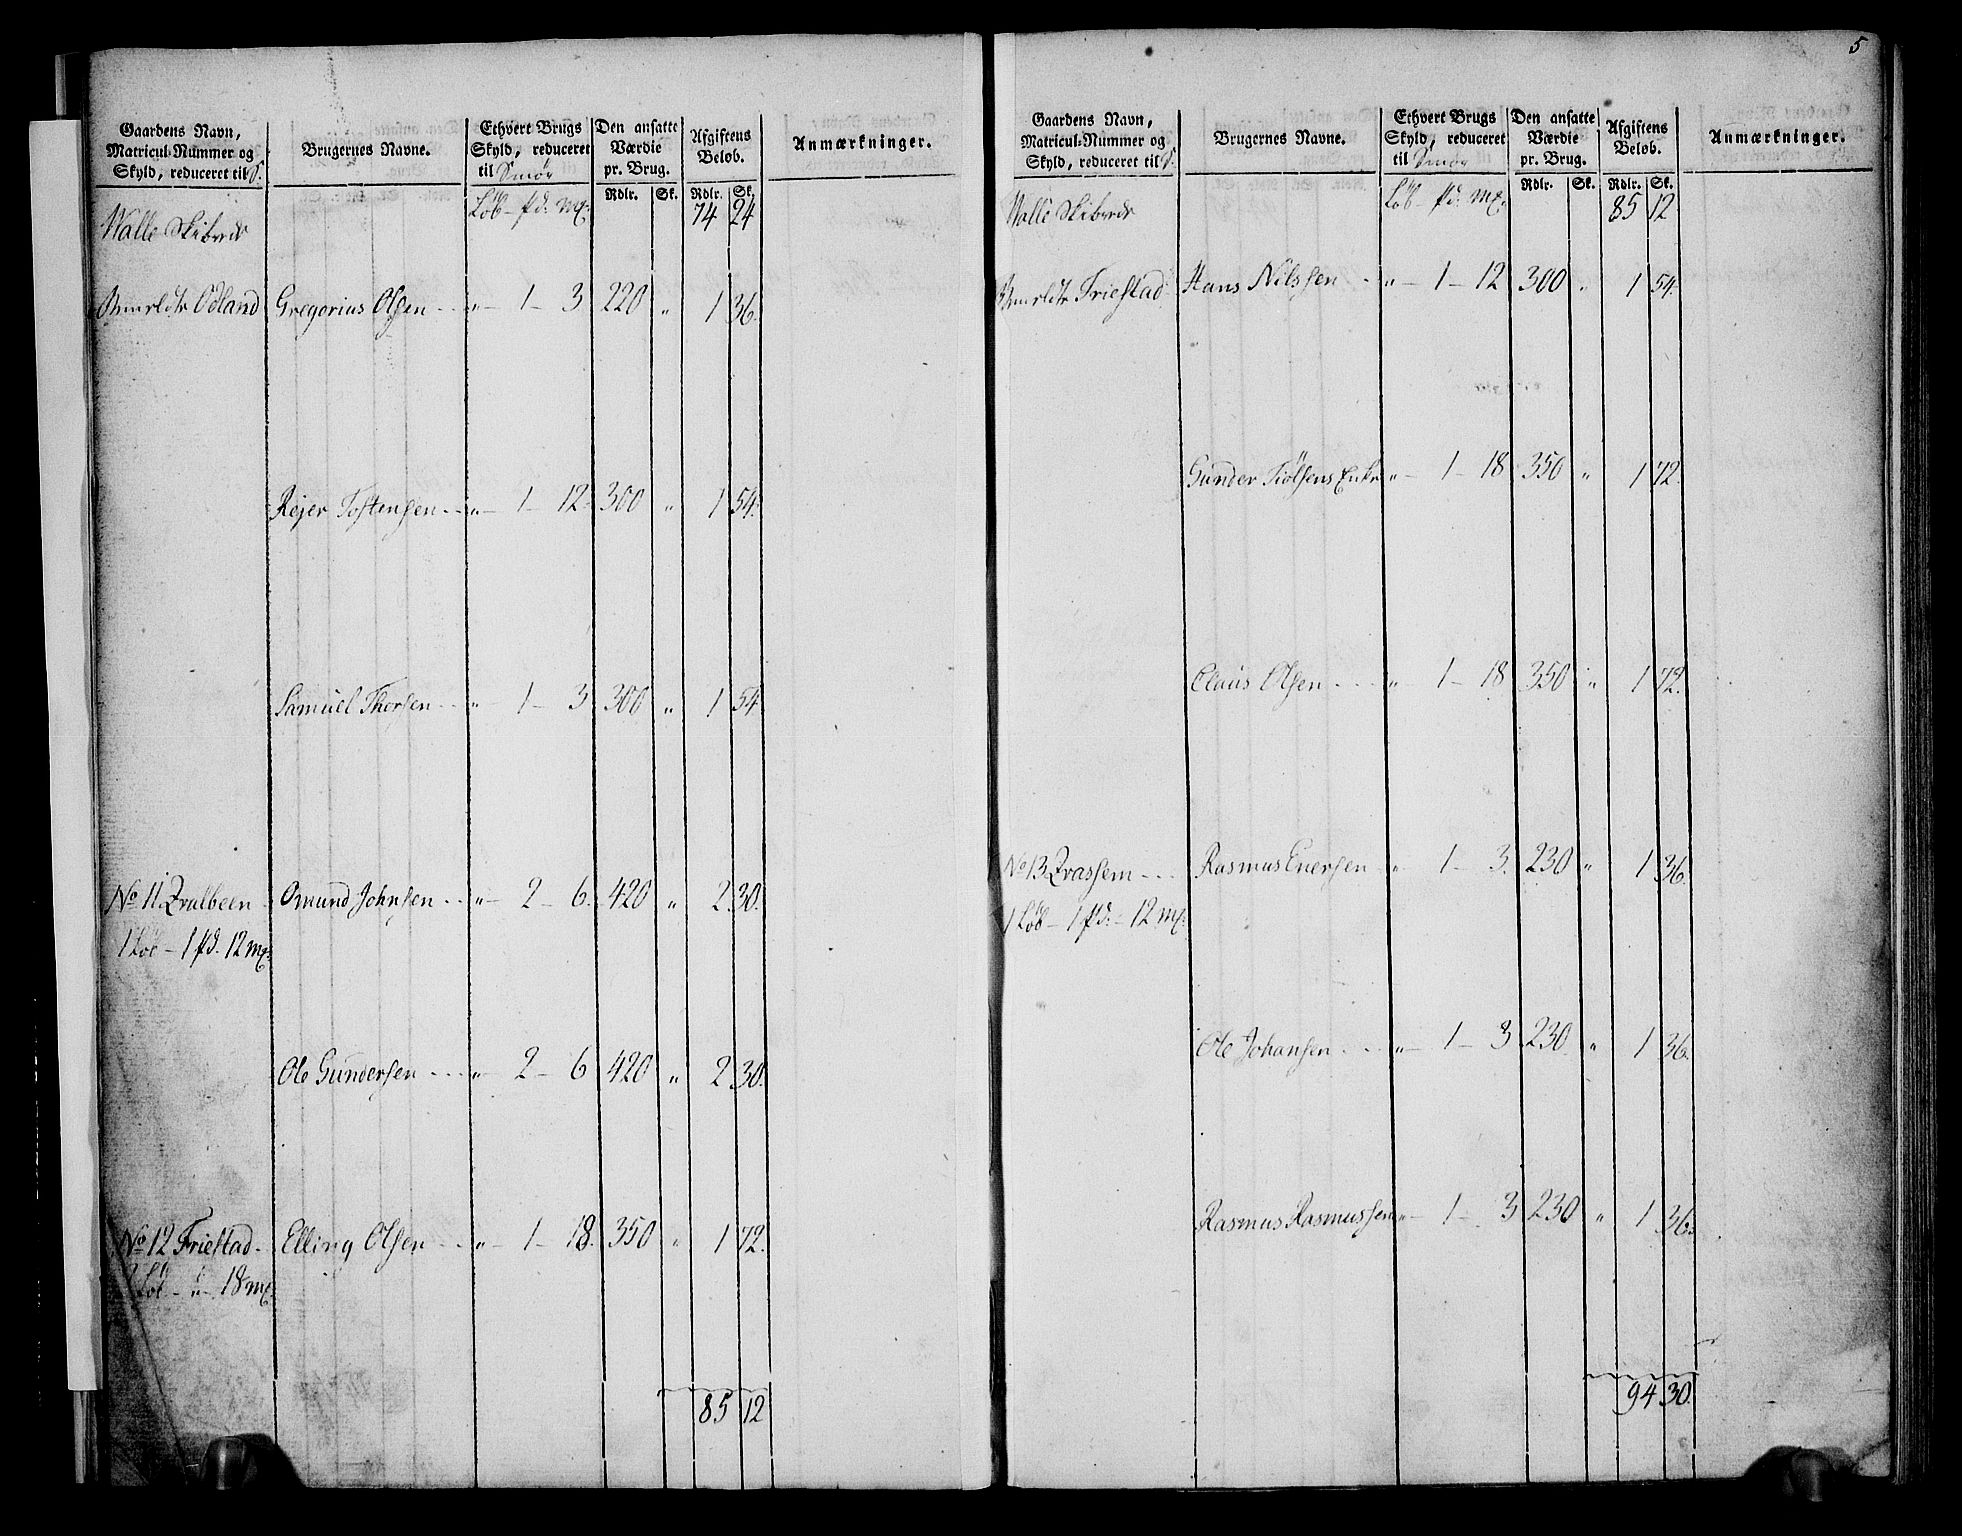 Gaardens Navn, Matricul-Nummer og Skyld, reduceret til S. | Brugernes Navne. | Ethvert Brugs Skyld, reduceret til Smør | Den ansatte Værdie pr. Brug. | Afgiftens Beløb. | Anmærkninger.
Rdlr. Sk. Rdlr. Sk.
Walle Skibrede Løb - pd: mk: 74 24
Odland Gregorius Olsen - - " - 1 - 3 220 " 1 36.
Rejer Tostensen - - " - 1 - 12 300 " 1 54.
Samuel Thorsen - - " - 1 - 3 300 " 1 54
No 11 Qvalbeen Omund Johnsen - - " - 2 - 6. 420 " 2 30.
1 Løb - 1 pd. 12 mk:
Ole Gundersen - - - " - 2 - 6 420 " 2 30.
No 12 Friestad - Elling Olsen - - " - 1 - 18. 350 " 1 72.
2 Løb - " - 18 mk:
85 12
5
Gaardens Navn, Matricul-Nummer og Skyld, reduceret til S. | Brugernes Navne. | Ethvert Brugs Skyld, reduceret til Smør | Den ansatte Værdie pr. Brug. | Afgiftens Beløb. | Anmærkninger.
Rdlr. Sk. Rdlr. Sk.
Walle Skibrede Løb - pd. mk: 85 12
Friestad Hans Nilssen - " - 1 - 12 300 " 1 54.
Gunder Tiölsens Enke " - 1 - 18 350 " 1 72.
Claus Olsen - - - " - 1 - 18 350 " 1 72.
No 13 Qvassem - - - Rasmus Enersen " - 1 - 3. 230 " 1 36.
1 Løb - 1 pd. - 12 mk:
Ole Johansen - - - " - 1 - 3 230 " 1 36.
Rasmus Rasmussen " - 1 - 3 230 " 1 36.
94 30.